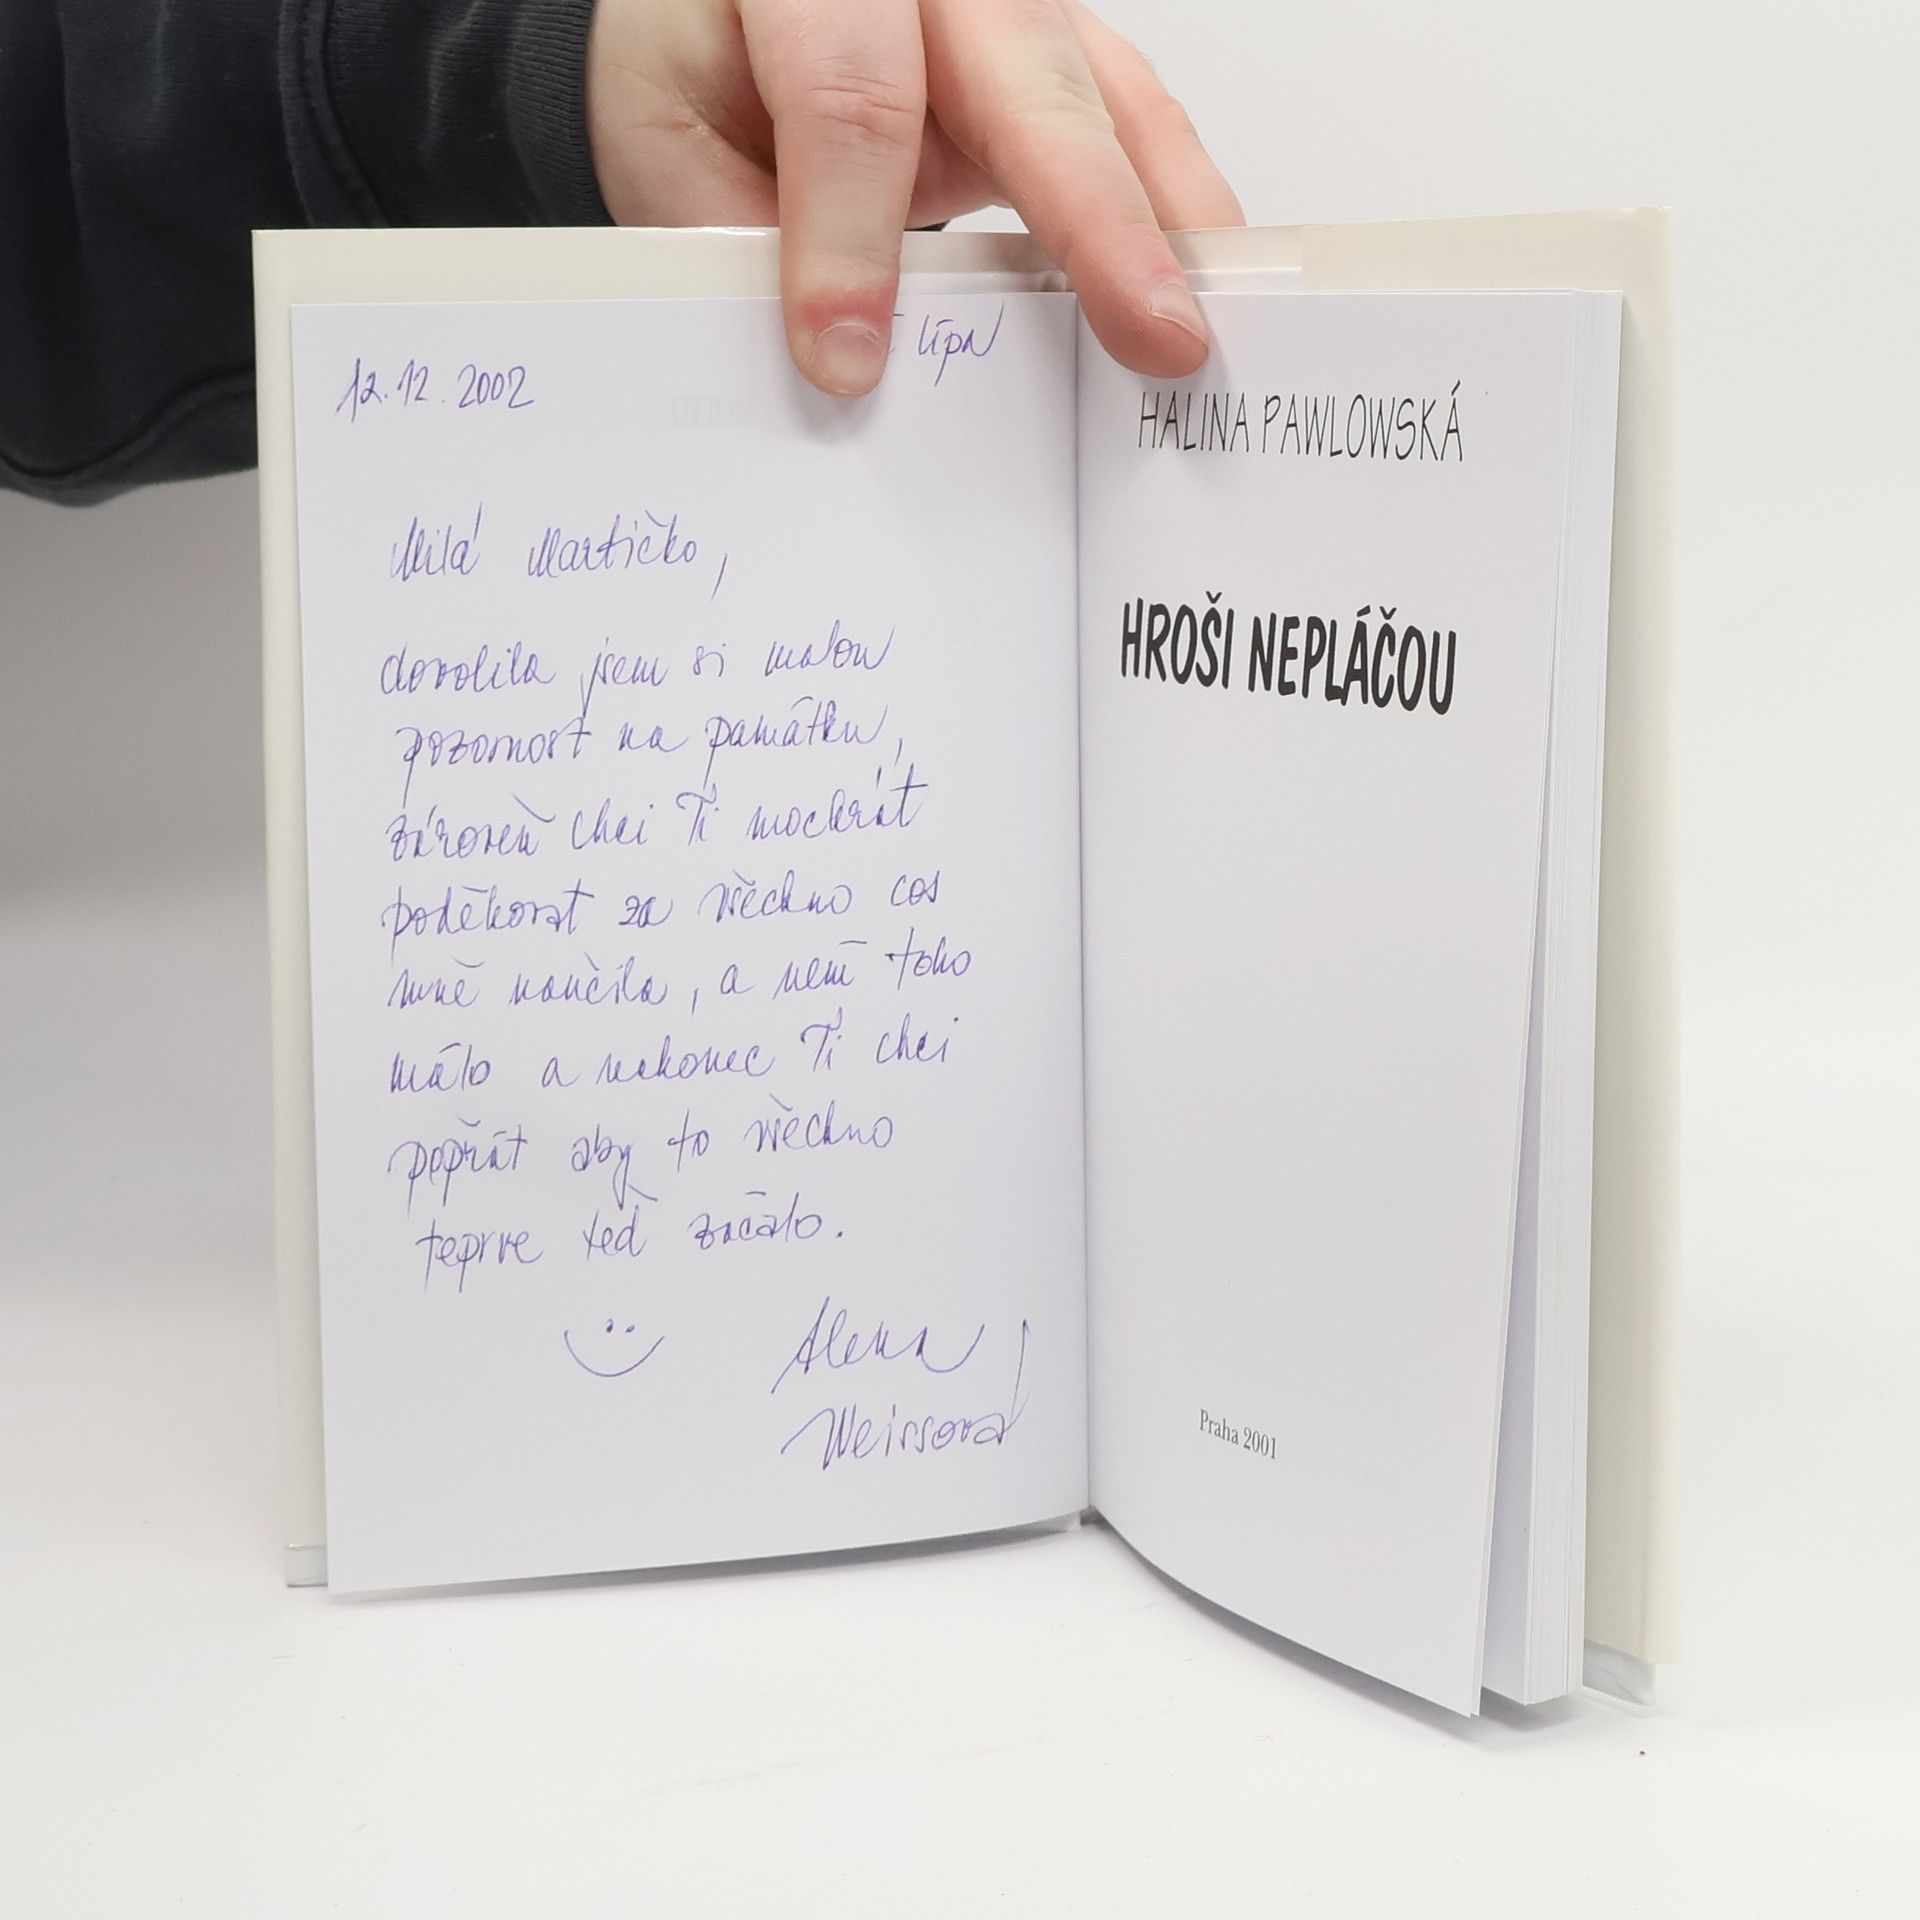 lípa
12.12.2002
Milá Martičko,
dovolila jsem si malou
pozornost na památku,
zároveň chci Ti mockrát
poděkovat za všechno cos
mně naučila, a není toho
málo a nakonec Ti chci
popřát aby to všechno
teprve teď začalo.
Alena
Weissová
HALINA PAWLOWSKÁ
HROŠI NEPLÁČOU
Praha 2001